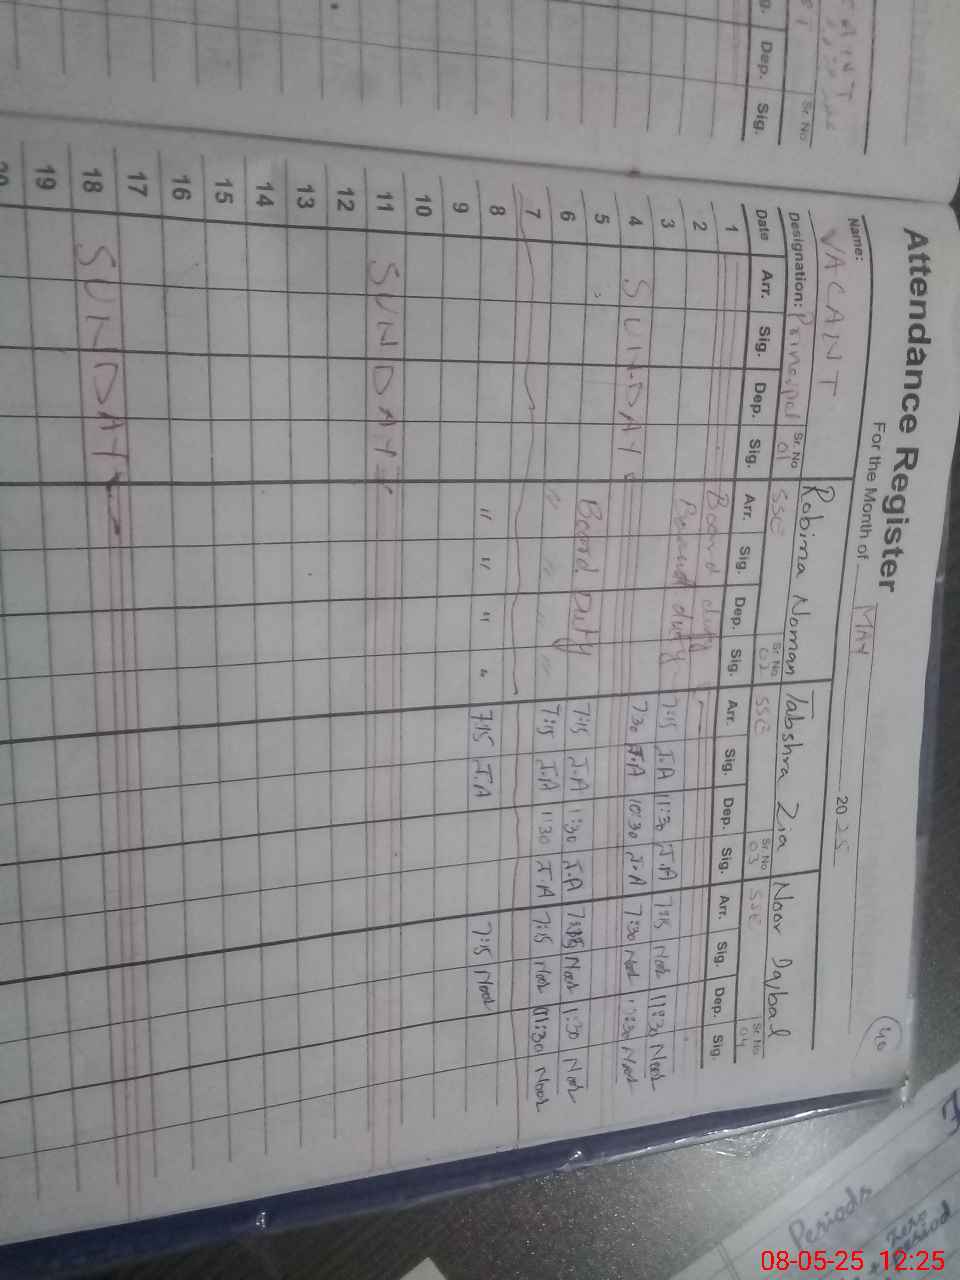 Attendance Register
For the Month of MAY 2025
40
Name: VACANT Robina Noman Tabshra Zia Noor Iqbal
Designation: Principal Sr. No 01 SSE Sr. No 02 SSE Sr. No 03 SSE Sr. No 04
Date Arr. Sig. Dep. Sig. Arr. Sig. Dep. Sig. Arr. Sig. Dep. Sig. Arr. Sig. Dep. Sig.
1
2 Board duty
3 Board duty 7:15 T.A 11:30 T.A 7:15 Noor 11:30 Noor
4 SUNDAY 7:30 T.A 10:30 T.A 7:30 Noor Noor
5 Board Duty 7:15 T.A 1:30 T.A Noor 1:30 Noor
6 " " " " 7:15 T.A 1:30 T.A 7:15 Noor 01:30 Noor
7
8 " " " " 7:15 T.A 7:15 Noor
9
10
11 SUNDAY
12
13
14
15
16
17
18 SUNDAY
19
20
Dep. Sig.
Sr. No
Periods
Zero Period
08-05-25 12:25